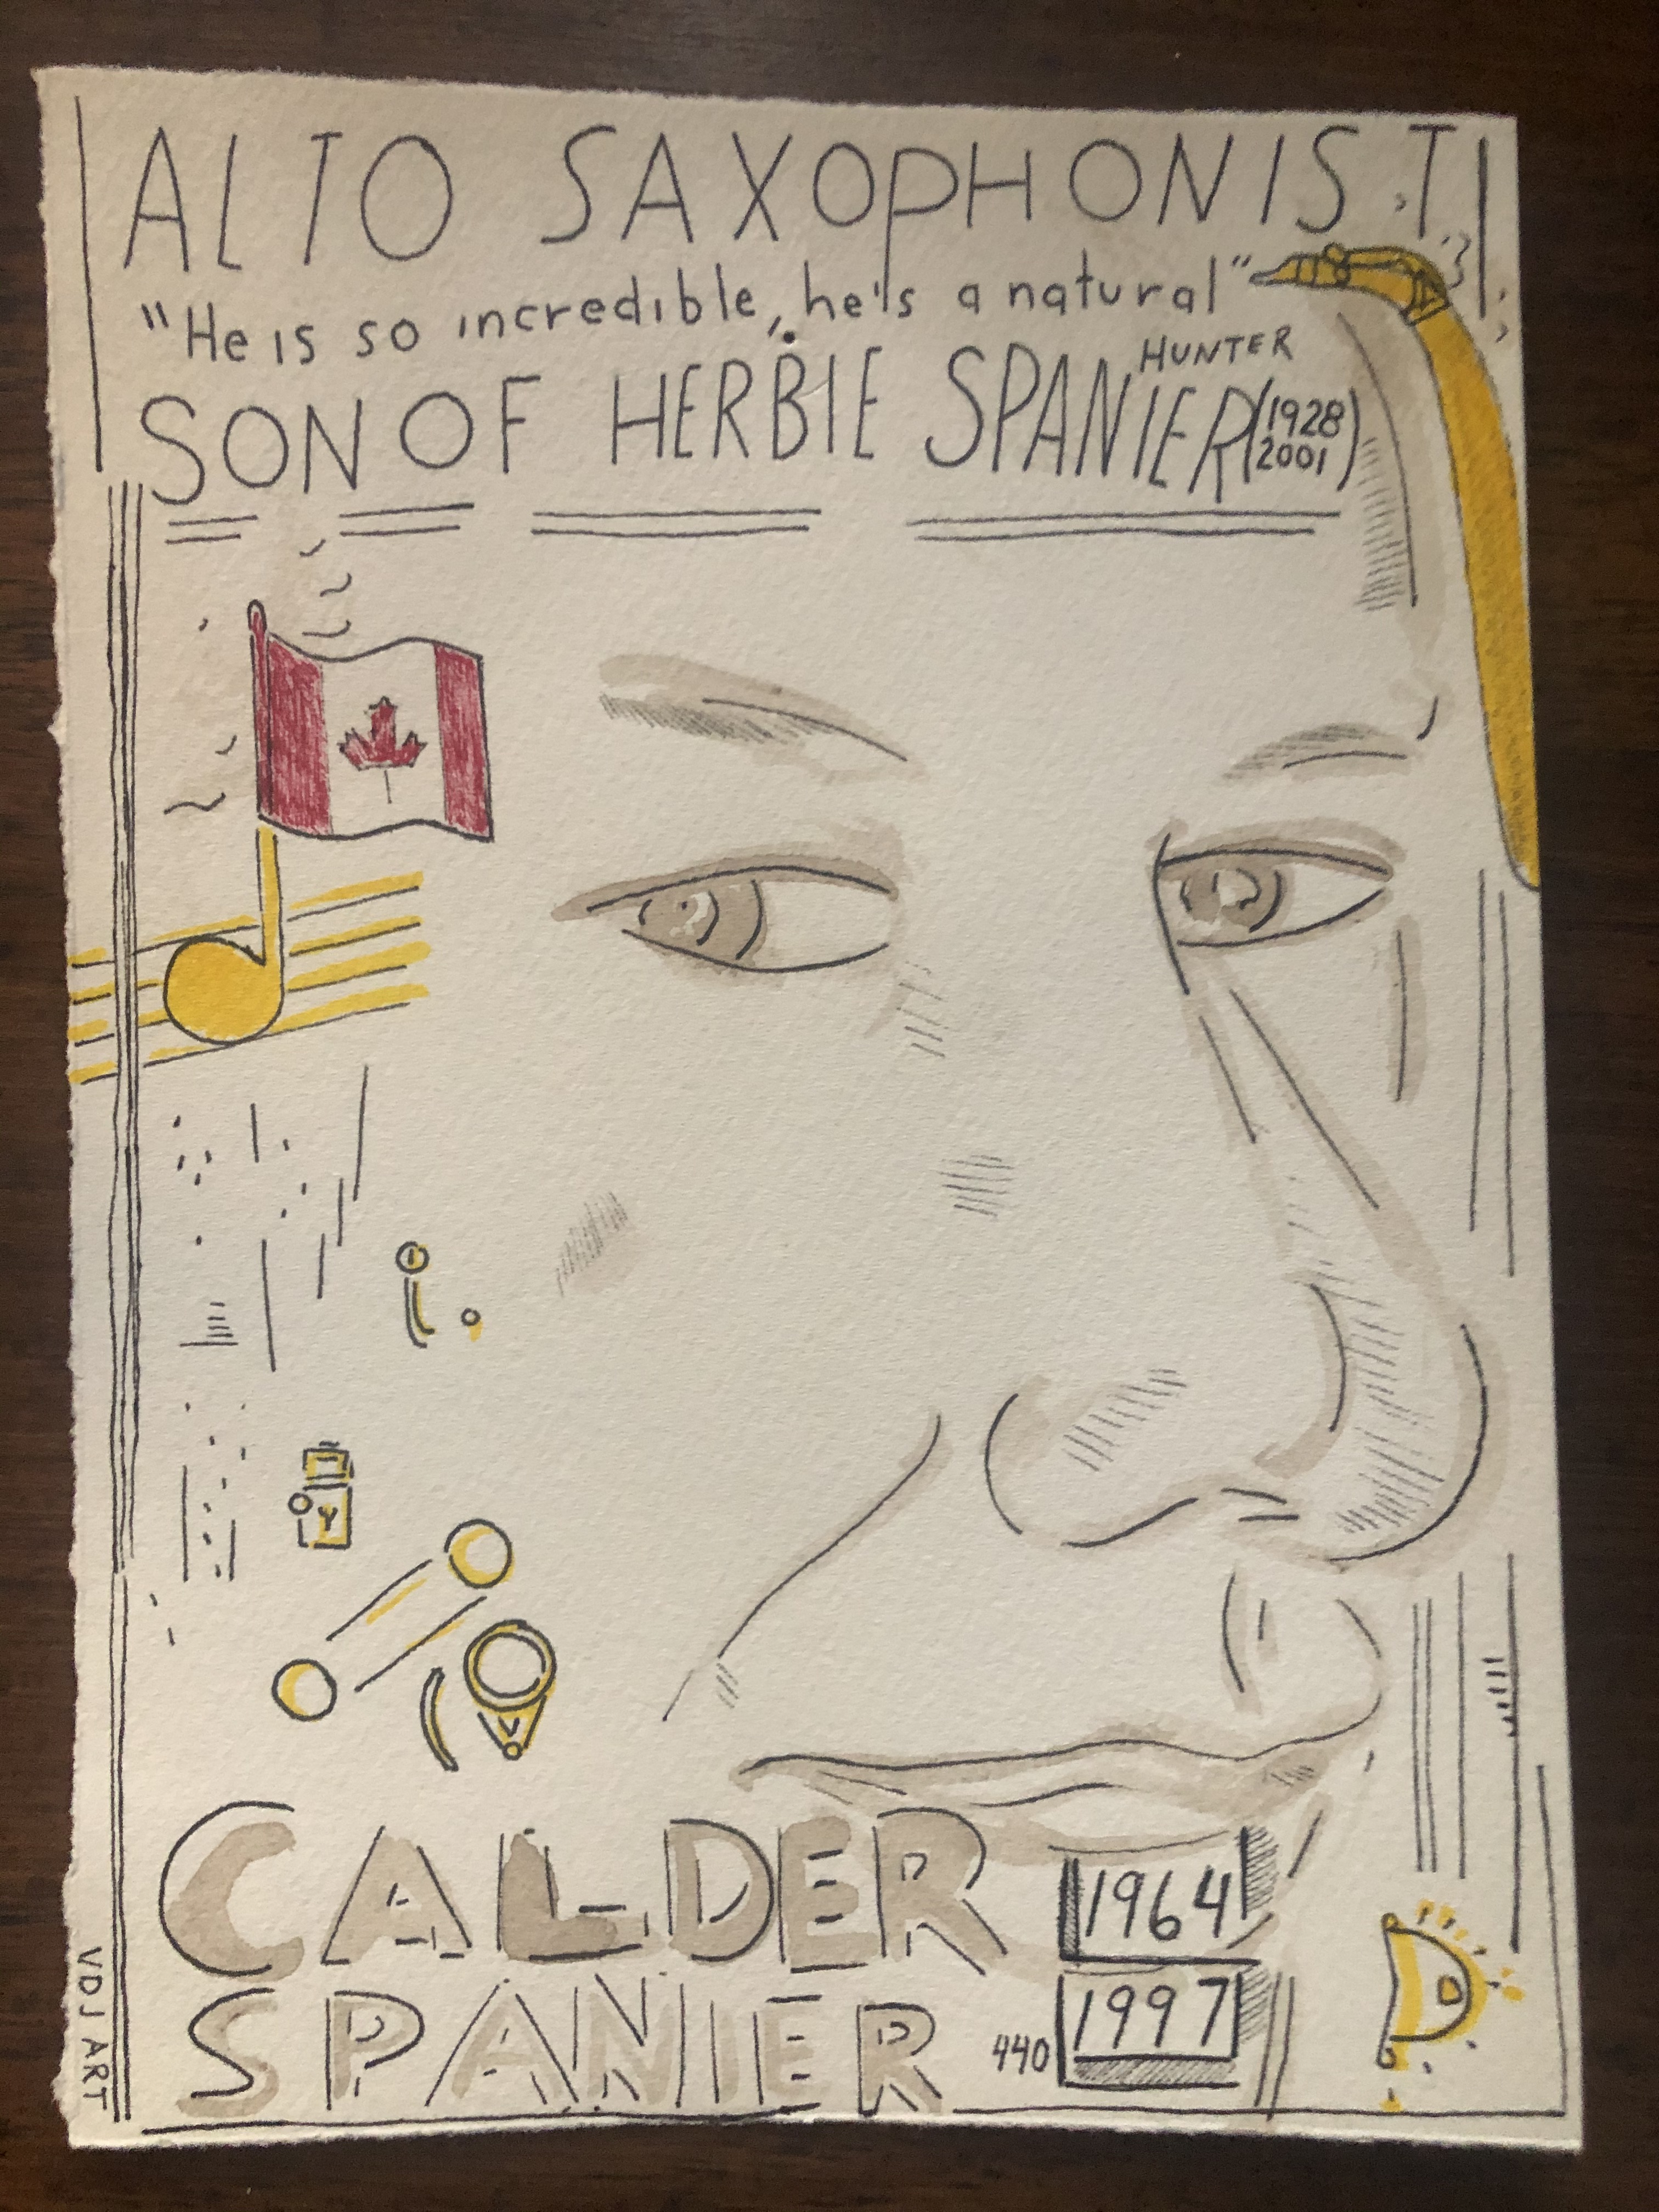 ALTO SAXOPHONIST
"He is so incredible, he's a natural"
HUNTER
SON OF HERBIE SPANIER (1928
2001)
CALDER
SPANIER
1964
1997
440
VDJ ART